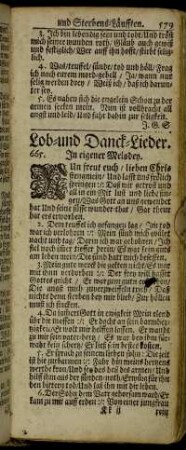 und Sterbens-Läufften. 579
3. Ich bin lebendig sein und todt/ Und tröst
mich seiner wunden roth/ Glaub auch gewiß
und festiglich Wer auff ihn hofft/ stirbt selig-
lich.
4. Was/teuffel/ sünde/ tod und höll/ Frag
ich noch eurem mord-gebell
ter sey.
5. Es nahen sich die engelein Schon zu der
armen seelen mein/ Nun ist vollbracht all
angst und leid Ich fahr dahin zur seligkeit.
J. G. S.
Lob- und Danck-Lieder.
665. In eigener Melodey.
NUn freut euch/ lieben Chris-
ten gemein/ Und lasst uns frölich
springen :|: Daß wir getrost und
all in ein Mit lust und liebe sin-
gen/ Was Gott an uns gewendet
hat Und seine süsse wunder that/ Gar theur
hat ers erworben.
2. Dem teuffel ich gefangen lag/ Im tod
war ich verlohren :|: Mein sünd mich quälet
nacht und tag/ Darin ich war gebohren/ Ich
fiel auch immer tieffer drein/ Es war kein guts
am leben mein Die sünd hatt mich besessen.
3. Mein gute werck die galten nicht/ Es war
mit ihn verdorben :|: Der frey will hasste
Gottes gricht/ Er war zum guten erstorben
Die angst mich zu verzweiffeln trieb/ Daß
nichts denn sterben bey mir blieb/ Zur höllen
must ich sincken.
4. Da jammert Gott in ewigkeit Mein elend
über die massen :|: Er dacht an sein barmher-
tzigkeit/ Er wolt mir helffen lassen/ Er wandt
zu mir sein vater-hertz/ Es war bey ihm für-
war kein schertz/ Er ließ sein bestes kosten.
5. Er sprach zu seinem lieben sohn: Die zeit
ist hie zurbarmen :|: Fahr hin meins hertzens
werthe kron/ Und sey das heyl der armen/ Und
hilff ihm aus der sünden noth/ Erwürg für ihn
den bittern tod Und laß ihn mit dir leben.
6. Der Sohn dem Vater gehorsam ward/ Er
kam zu mir auff erden :|: Von einer jungfrau
Kk ij